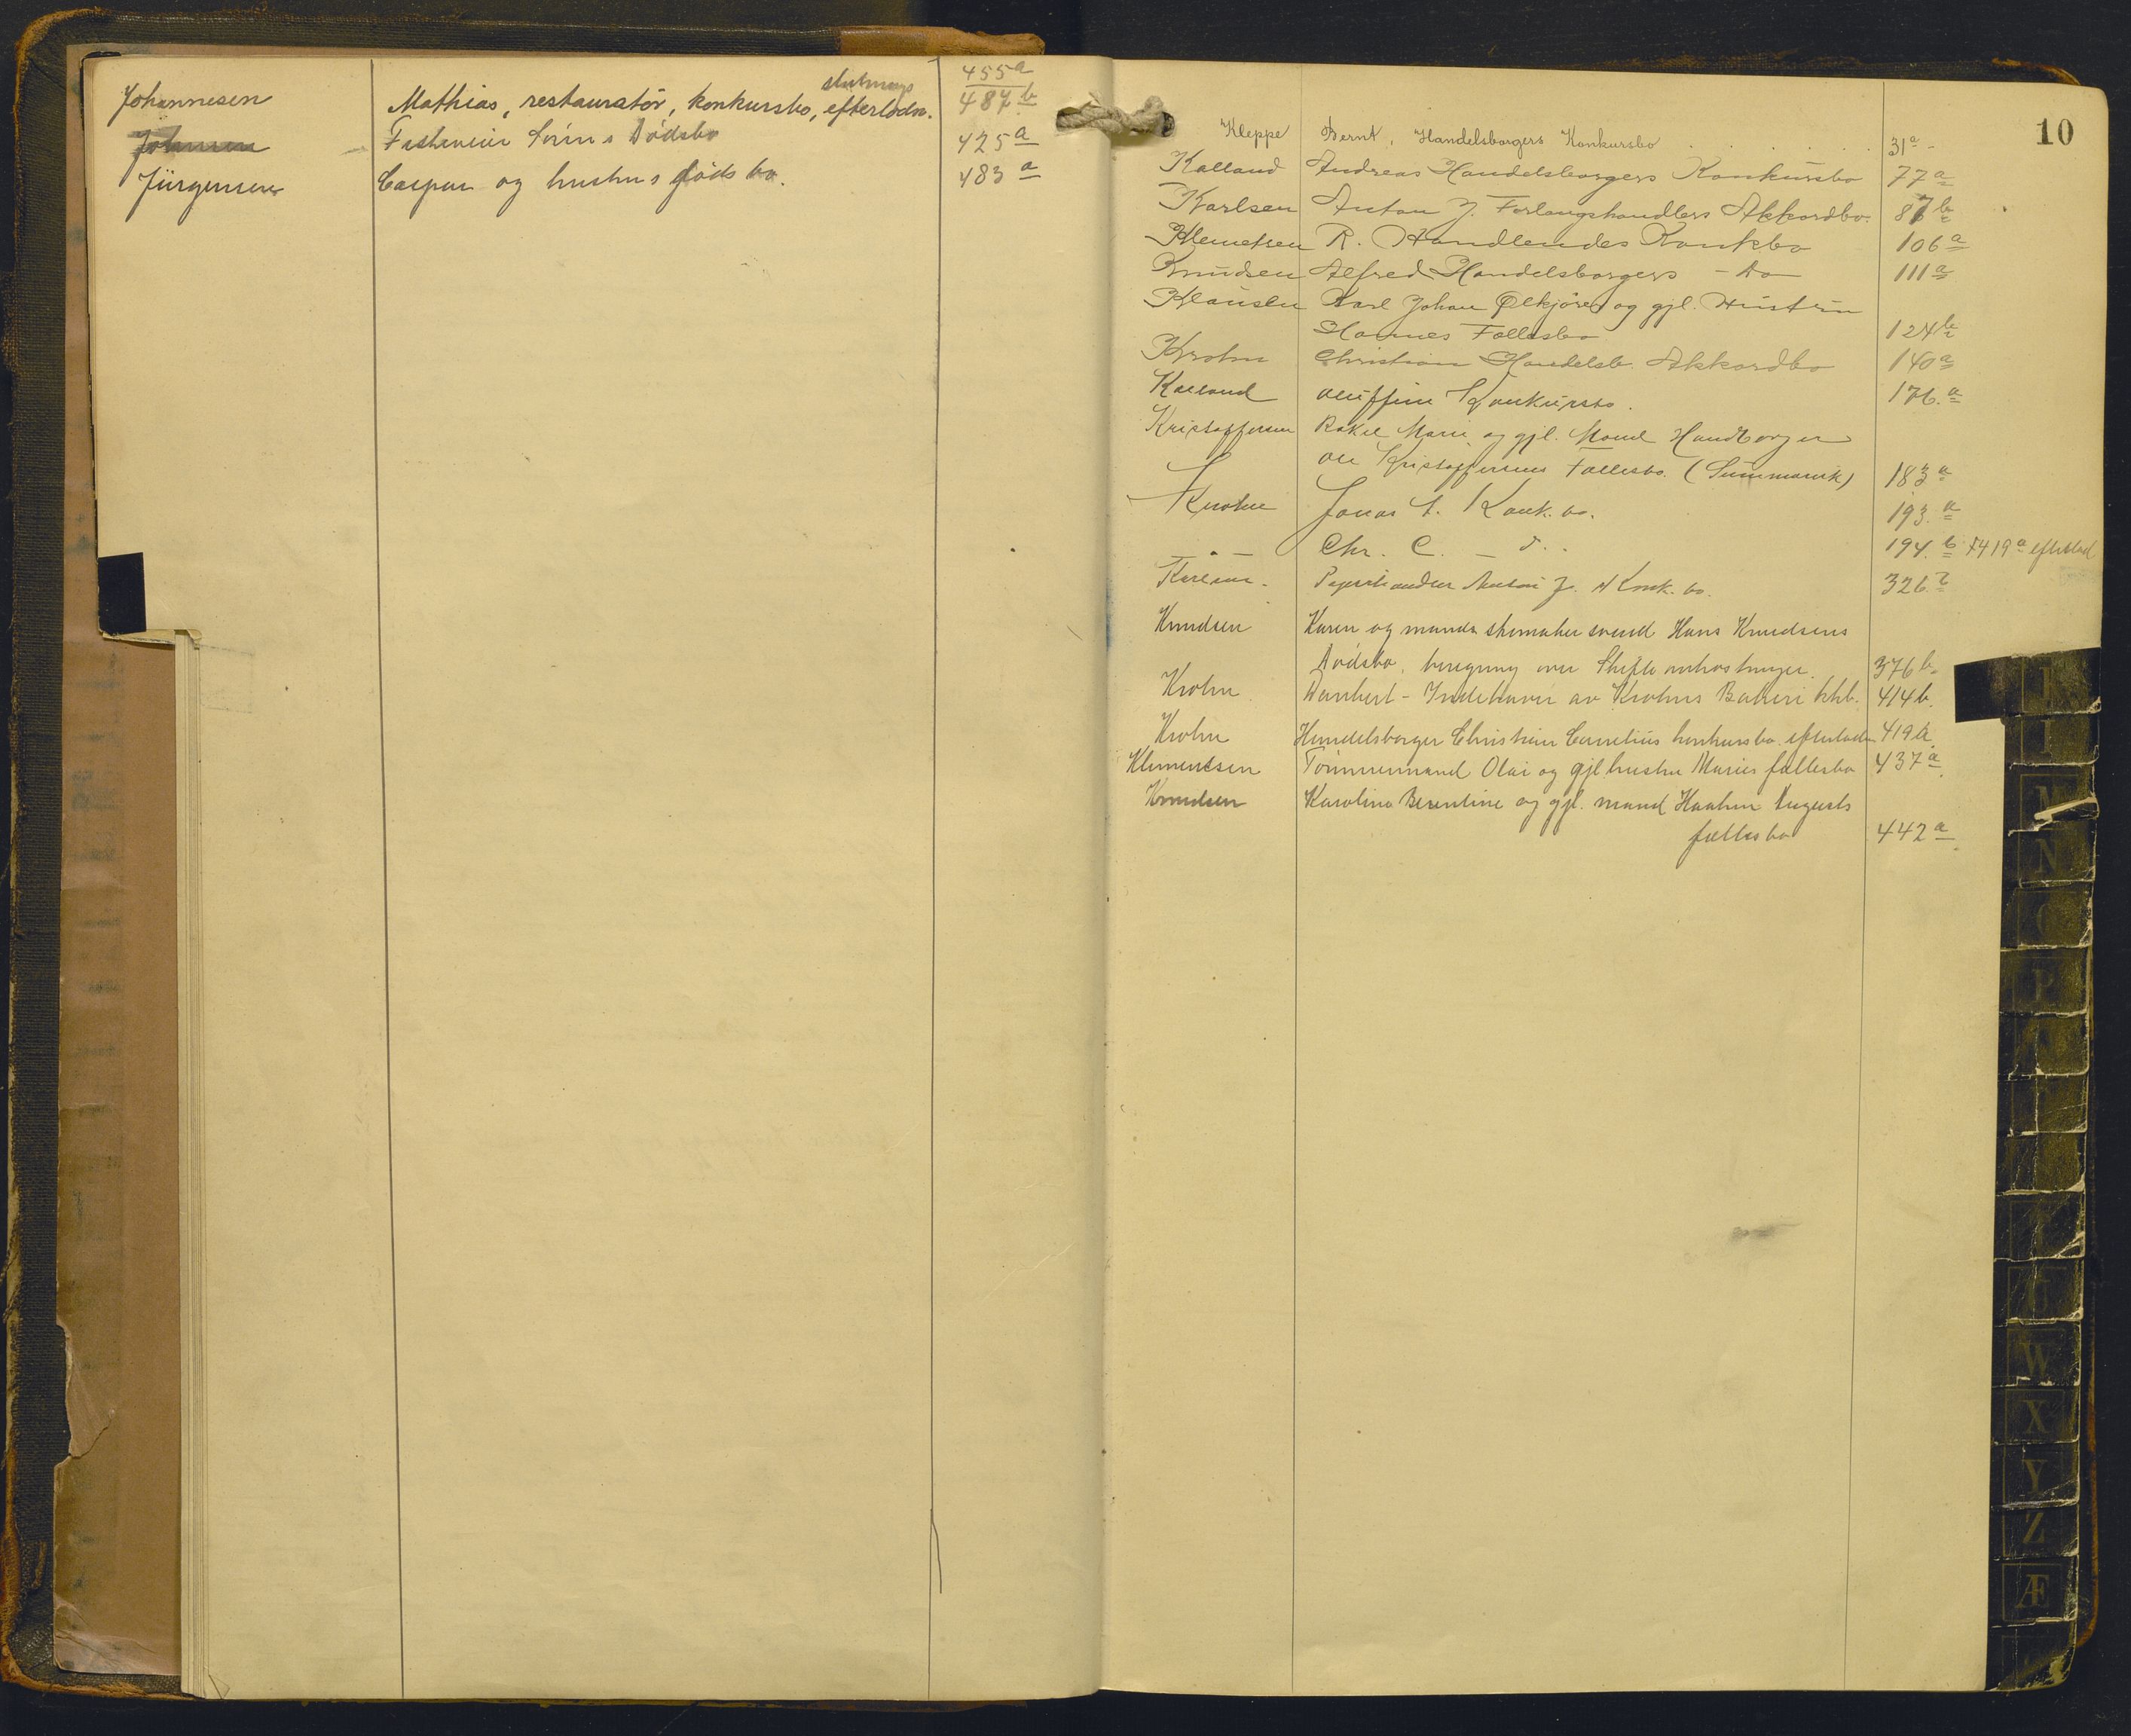 slutnings 455a
Johannesen Mathias, restauratør, konkursbo, efterlodn. 487b
Johnsen Dødsbo 425a
Jürgensen Caspar og hustrus døds bo. 483a
10
Kleppe Bernt, Handelsborgers Konkursbo 31a
Kalland Andreas Handelsborgers Konkursbo 77a
Karlsen Anton J. Forlangshandlers Akkordbo. 87b
Klemetsen R. Handlendes Konkbo 106a
Knudsen Alfred Handelsborgers - Do - 111a
Klausen Karl Johan Ølkjører og gjl. Hustru
Hannes Fællesbo 124b
Krohn Christian Handelsb. Akkordbo 140a
Kalland Konkursbo. 176.a
Kristoffersen Rakel Marie og gjl. Mand Handborger
Ole Kristoffersens Fællesbo. (Summarisk) 183a
Krohn Jonas L. Konk. bo. 193.a
- " - Chr. C. - d. . 194.b 419a
Karlsen. Anton J. s Konk. bo. 326.b
Knudsen Karen og mands skomaker svend Hans Knudsens
Dødsbo, beregning over Skifteomkostninger. 376b.
Krohn Indehaver av Krohns Bakeri kkb. 414b.
Krohn Handelsborger Christian Cornelius konkursbo. efterlodn 419a
Klementsen Tømmermand Olai og gjl hustru Maries fællesbo 437a.
Knudsen Karolina Berentine og gjl. mand Haakon Augusts
fællesbo 442a.
M
N
O
P
U
W
X
Y
Z
Æ